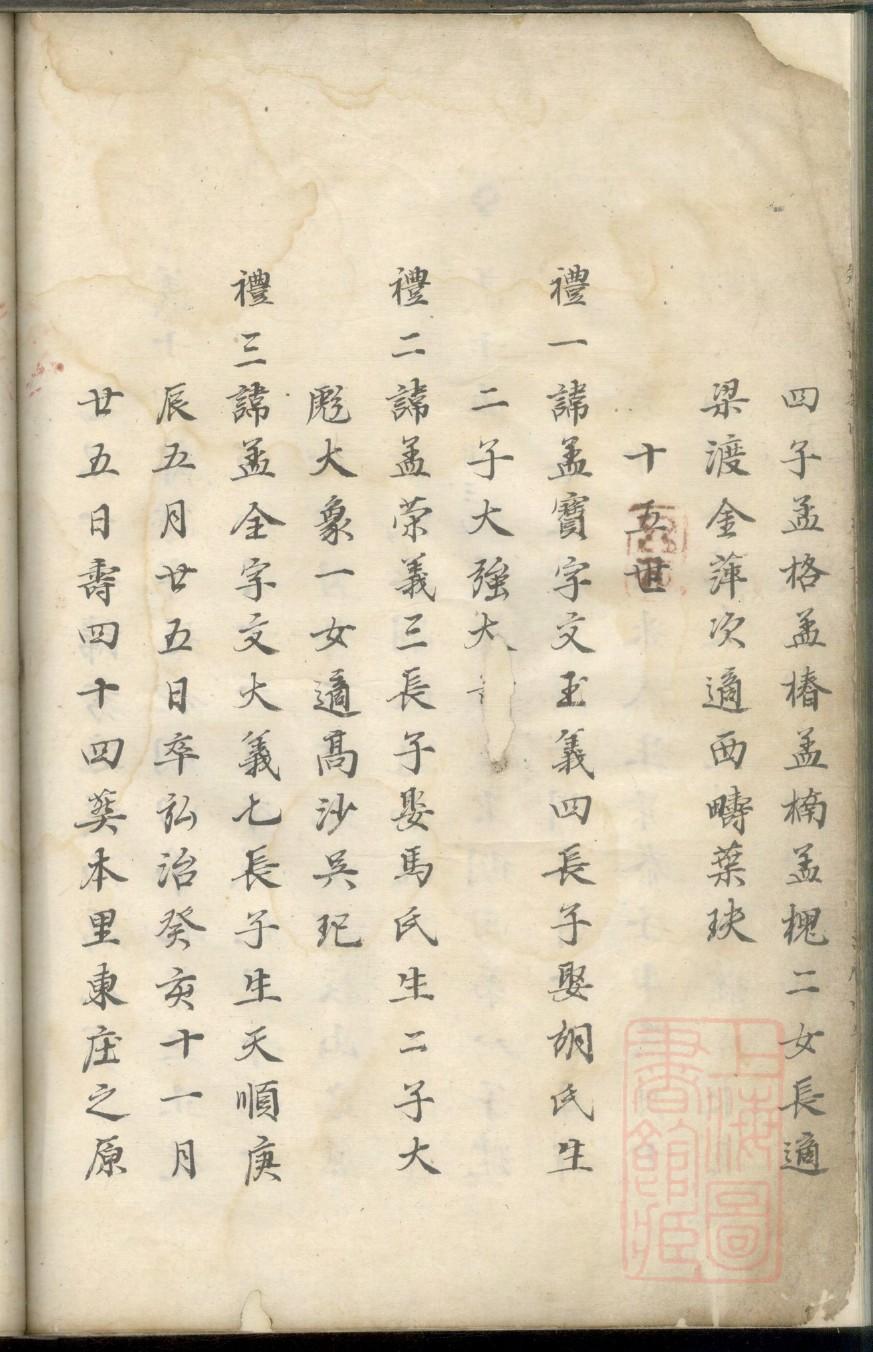 四子孟格孟椿孟楠孟槐二女長適
梁渡金萍次適西疇葉玦
十五世
禮一諱孟寶字文玉義四長子娶胡氏生
二子大強大
禮二諱孟荣義三長子娶馬氏生二子大
彪大象一女適髙沙吳玘
禮三諱孟全字文大義七長子生天順庚
辰五月廿五日卒弘治癸亥十一月
廿五日壽四十四葬本里東庄之原
上海圖書館藏